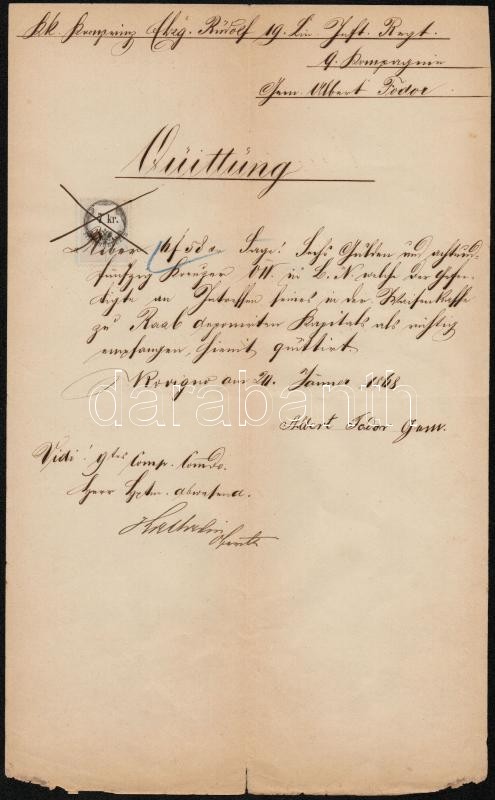 kk. Kronprinz Ehzg. Rudolf 19. Lin. Inft. Regt.
9. Kompagnie
Gem. Albert Fodor.
Quittung
7 kr.
Über 6 f 58 Sage! Sechs Gulden und achtund-
fünfzig Kreuzer ÖW. in B.N. welche der Gefer-
tigte an Interessen seines in der Waisenkasse
zu Raab deponirten Kapitals als richtig
empfangen, hiemit quittirt.
Rovigno am 24. Jänner 1868
darabanth
Albert Fodor Gem.
Vidi! 9tes Comp. Comdo.
Herr Hptm. abwesend.